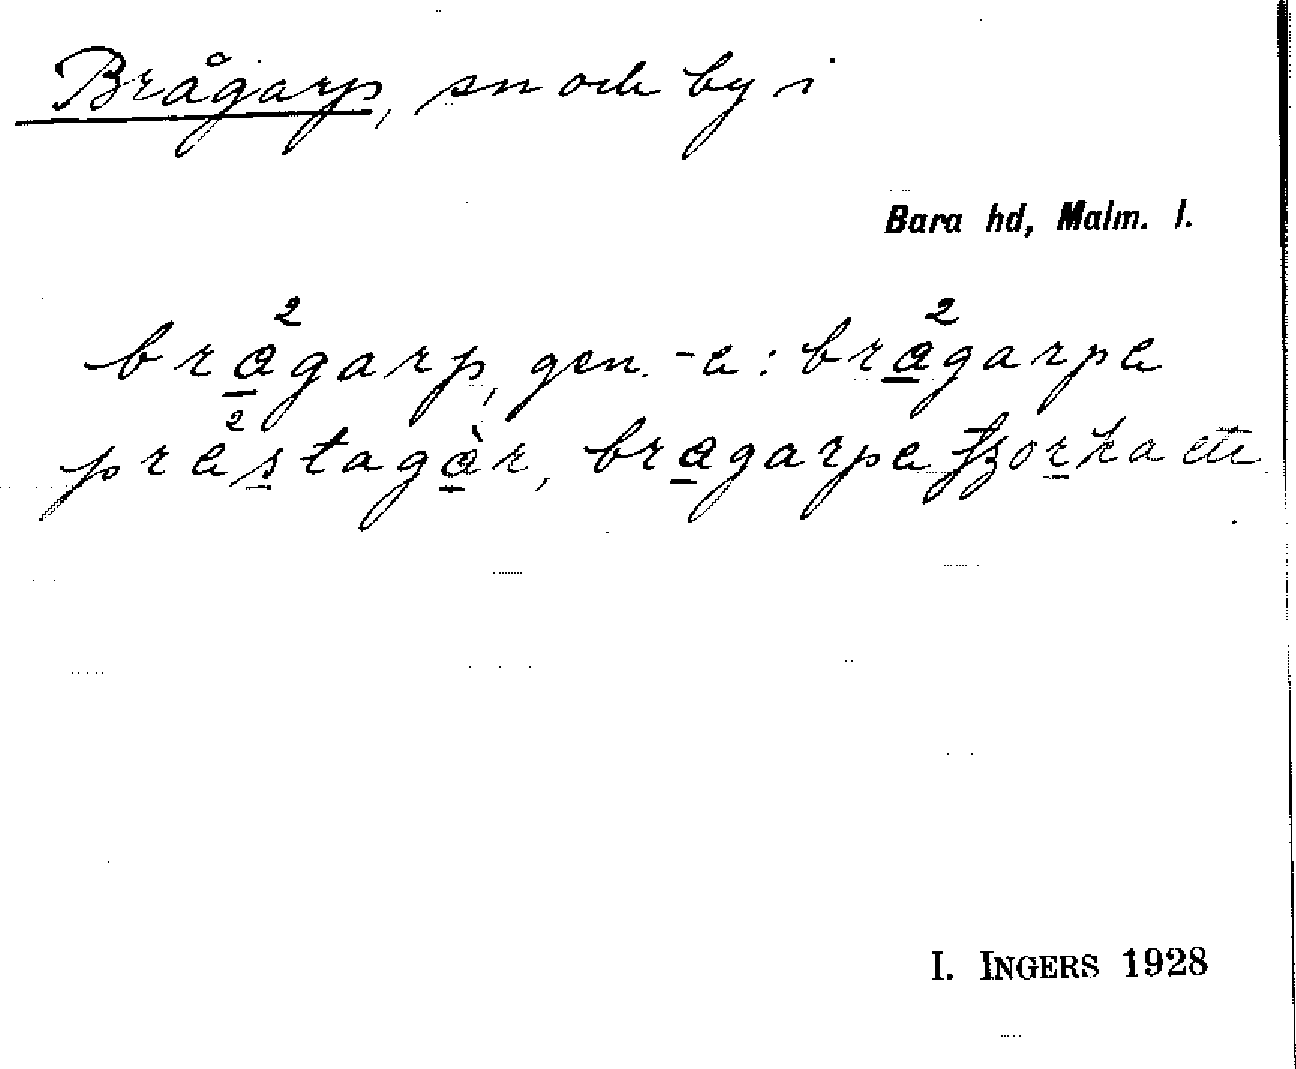 Brågarp, sn och by i
Bara hd, Malm. l.
brα̲²garp, gen. -a: brα̲²garpa
pra²s̲tagὰ̲r, brα̲garpa
I. INGERS 1928